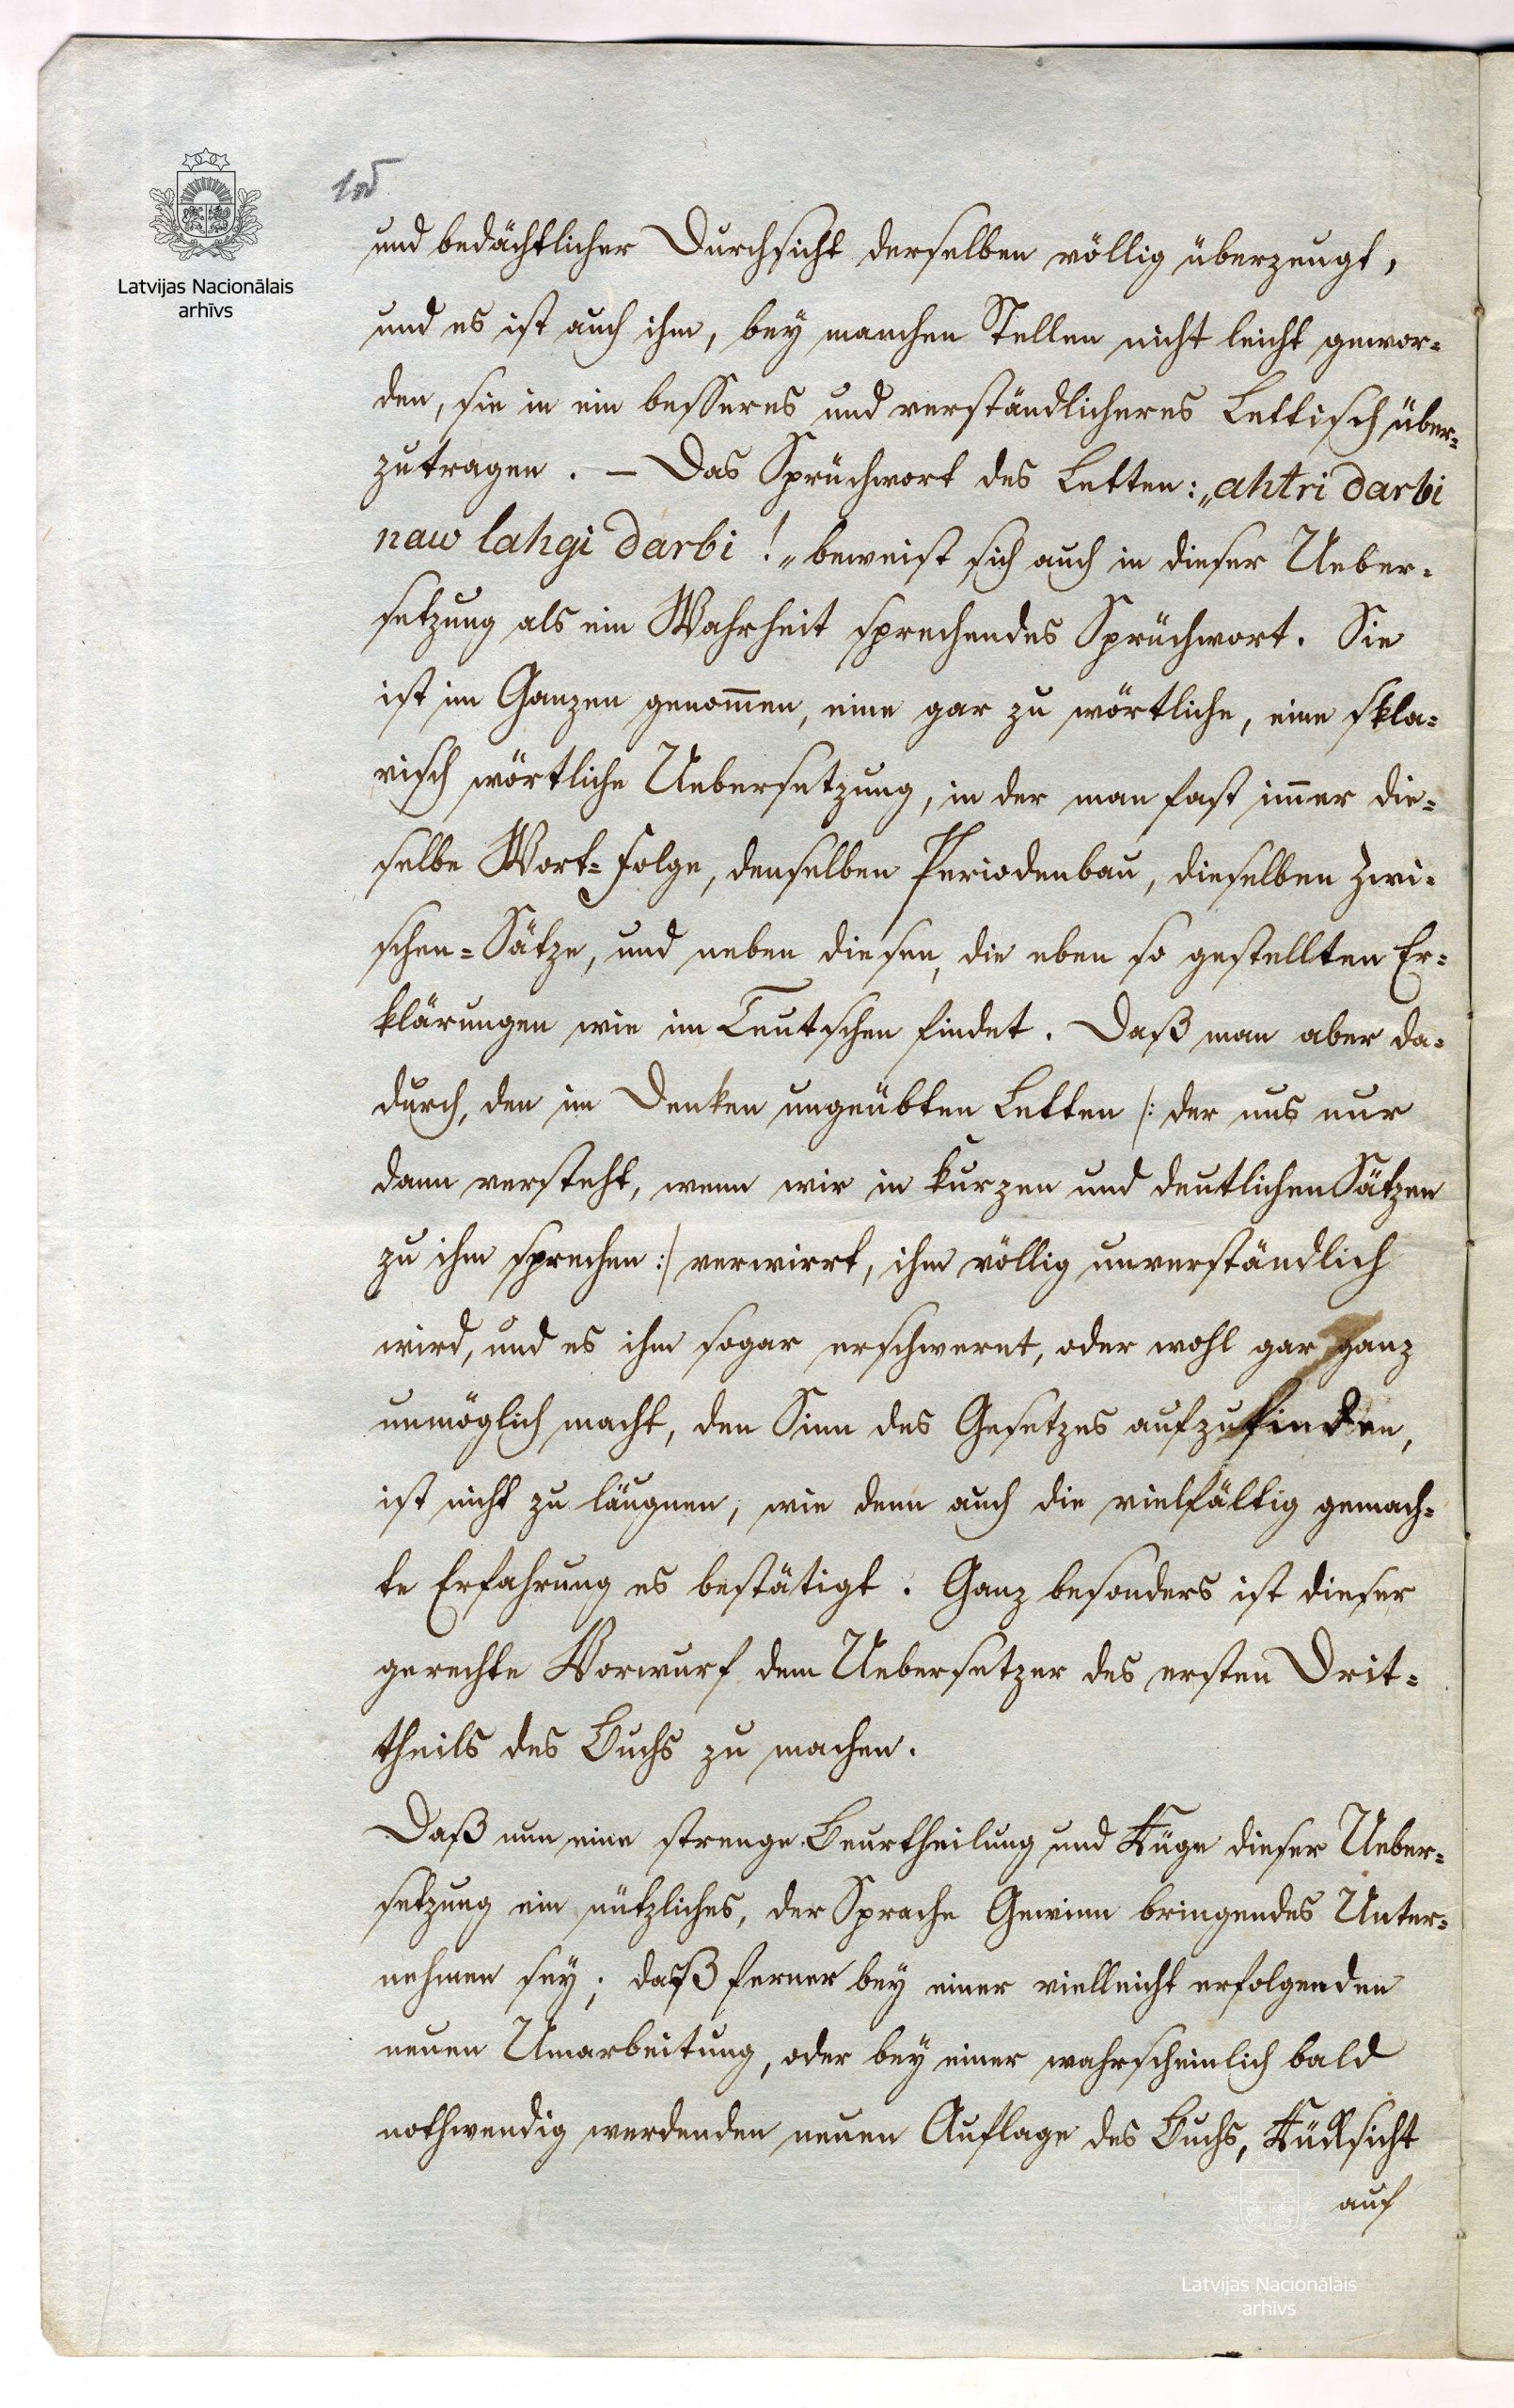 Latvijas Nacionālais
arhīvs
und bedächtlicher Durchsicht derselben völlig überzeugt,
und es ist auch ihm, bey manchen Stellen nicht leicht gewor=
den, sie in ein besseres und verständlicheres Lettisch über=
zutragen. — Das Sprüchwort des Letten: „ahtri darbi
naw lahgi darbi!„ beweist sich auch in dieser Ueber=
setzung als ein Wahrheit sprechendes Sprüchwort. Sie
ist im Ganzen genom̅en, eine gar zu wörtliche, eine skla=
visch wörtliche Uebersetzung, in der man fast im̅er die=
selbe Wort=Folge, denselben Periodenbau, dieselben Zwi=
schen=Sätze, und neben diesen, die eben so gestellten Er=
klärungen wie im Teutschen findet. Daß man aber da=
durch, den im Denken ungeübten Letten /: der uns nur
dann versteht, wenn wir in kurzen und deutlichen Sätzen
zu ihm sprechen :/ verwirrt, ihm völlig unverständlich
wird, und es ihm sogar erschweret, oder wohl gar ganz
unmöglich macht, den Sinn des Gesetzes aufzufinden,
ist nicht zu läugnen, wie denn auch die vielfältig gemach=
te Erfahrung es bestätigt. Ganz besonders ist dieser
gerechte Vorwurf dem Uebersetzer des ersten Drit=
theils des Buchs zu machen.
Daß nun eine strenge Beurtheilung und Rüge dieser Ueber=
setzung ein nützliches, der Sprache Gewinn bringendes Unter=
nehmen sey; daß ferner bey einer vielleicht erfolgenden
neuen Umarbeitung, oder bey einer wahrscheinlich bald
nothwendig werdenden neuen Auflage des Buchs, Rücksicht
auf
Latvijas Nacionālais
arhīvs